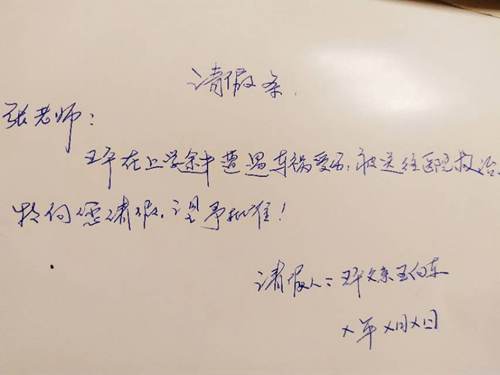 请假条
张老师：
王平在上学途中遭遇车祸受伤，被送往医院救治，
特向您请假，望予批准！
请假人：王平父亲王向东
X年X月X日